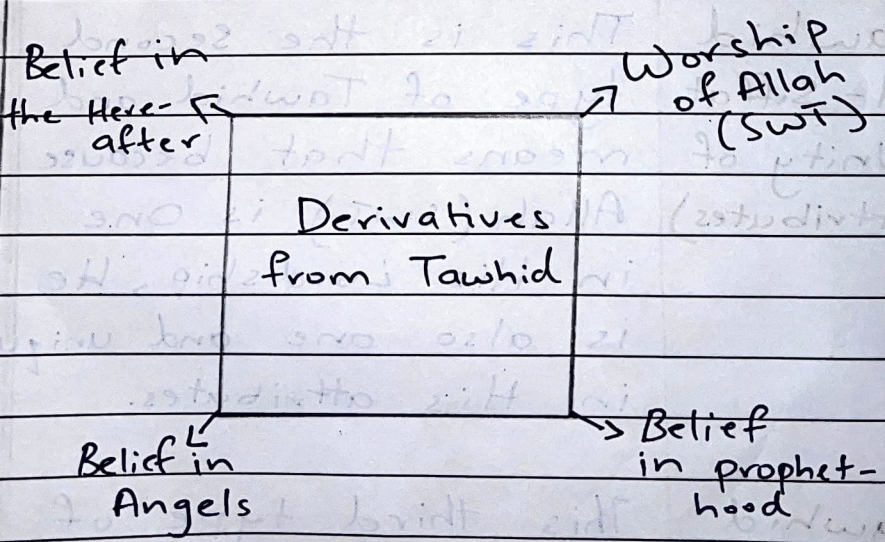 Belief in
the Here-
after
Worship
of Allah
(SWT)
Derivatives
from Tawhid
Belief in
Angels
Belief
in prophet-
hood